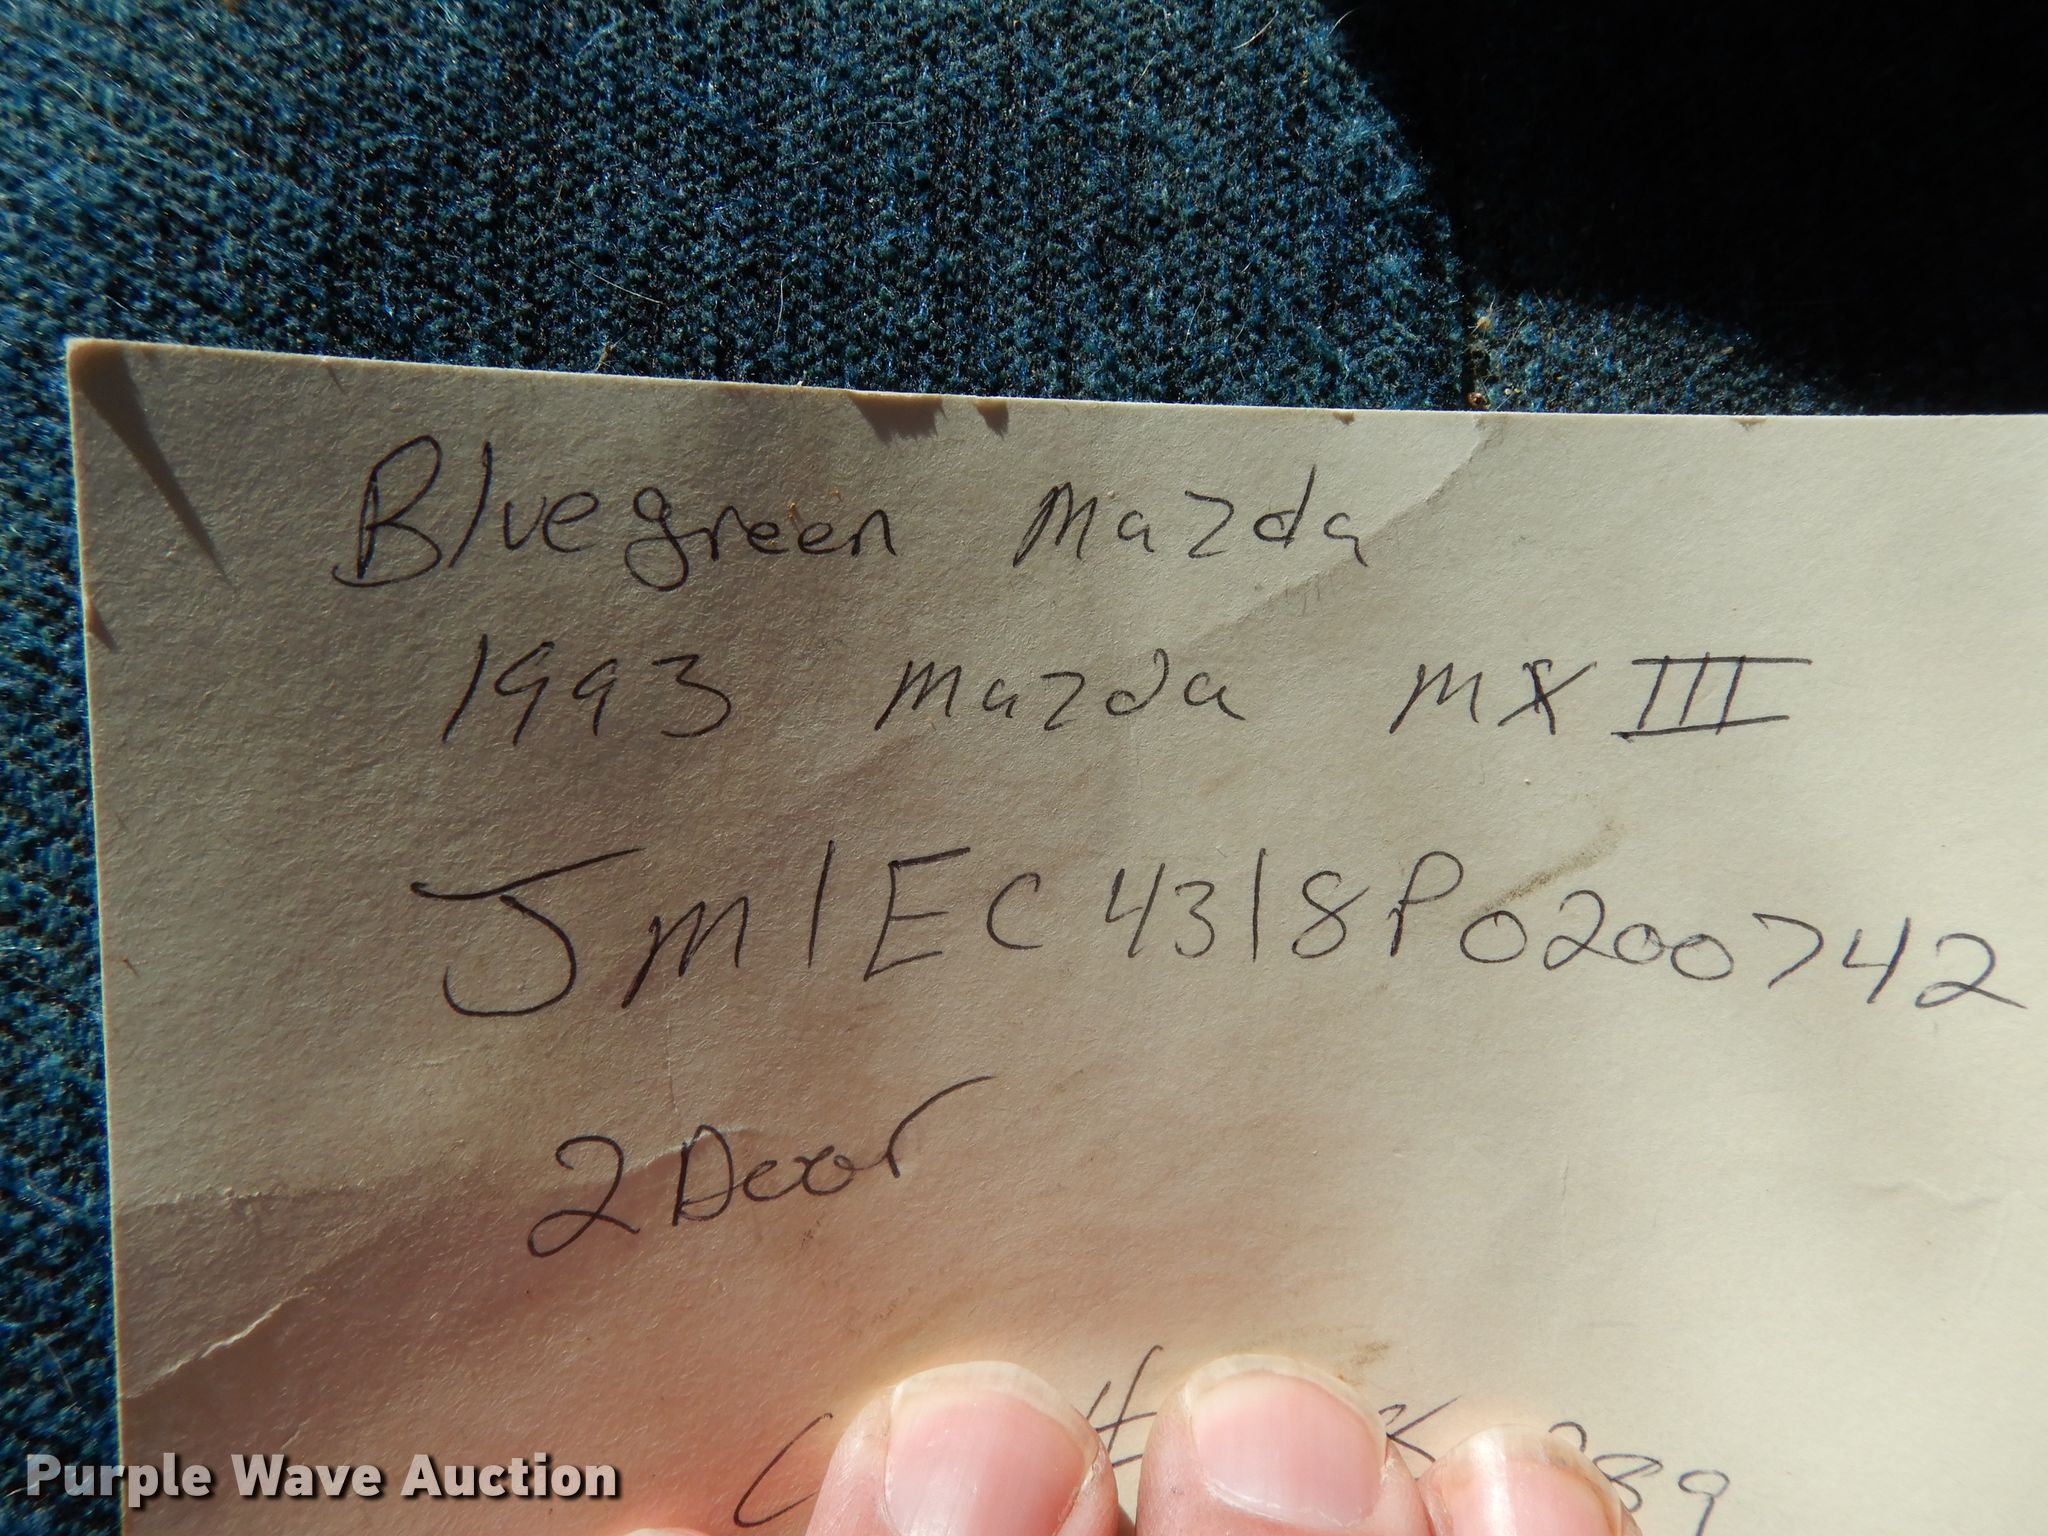 Bluegreen Mazda
1993 Mazda MX III
Jm1EC4318P0200742
2 Door
89
Purple Wave Auction